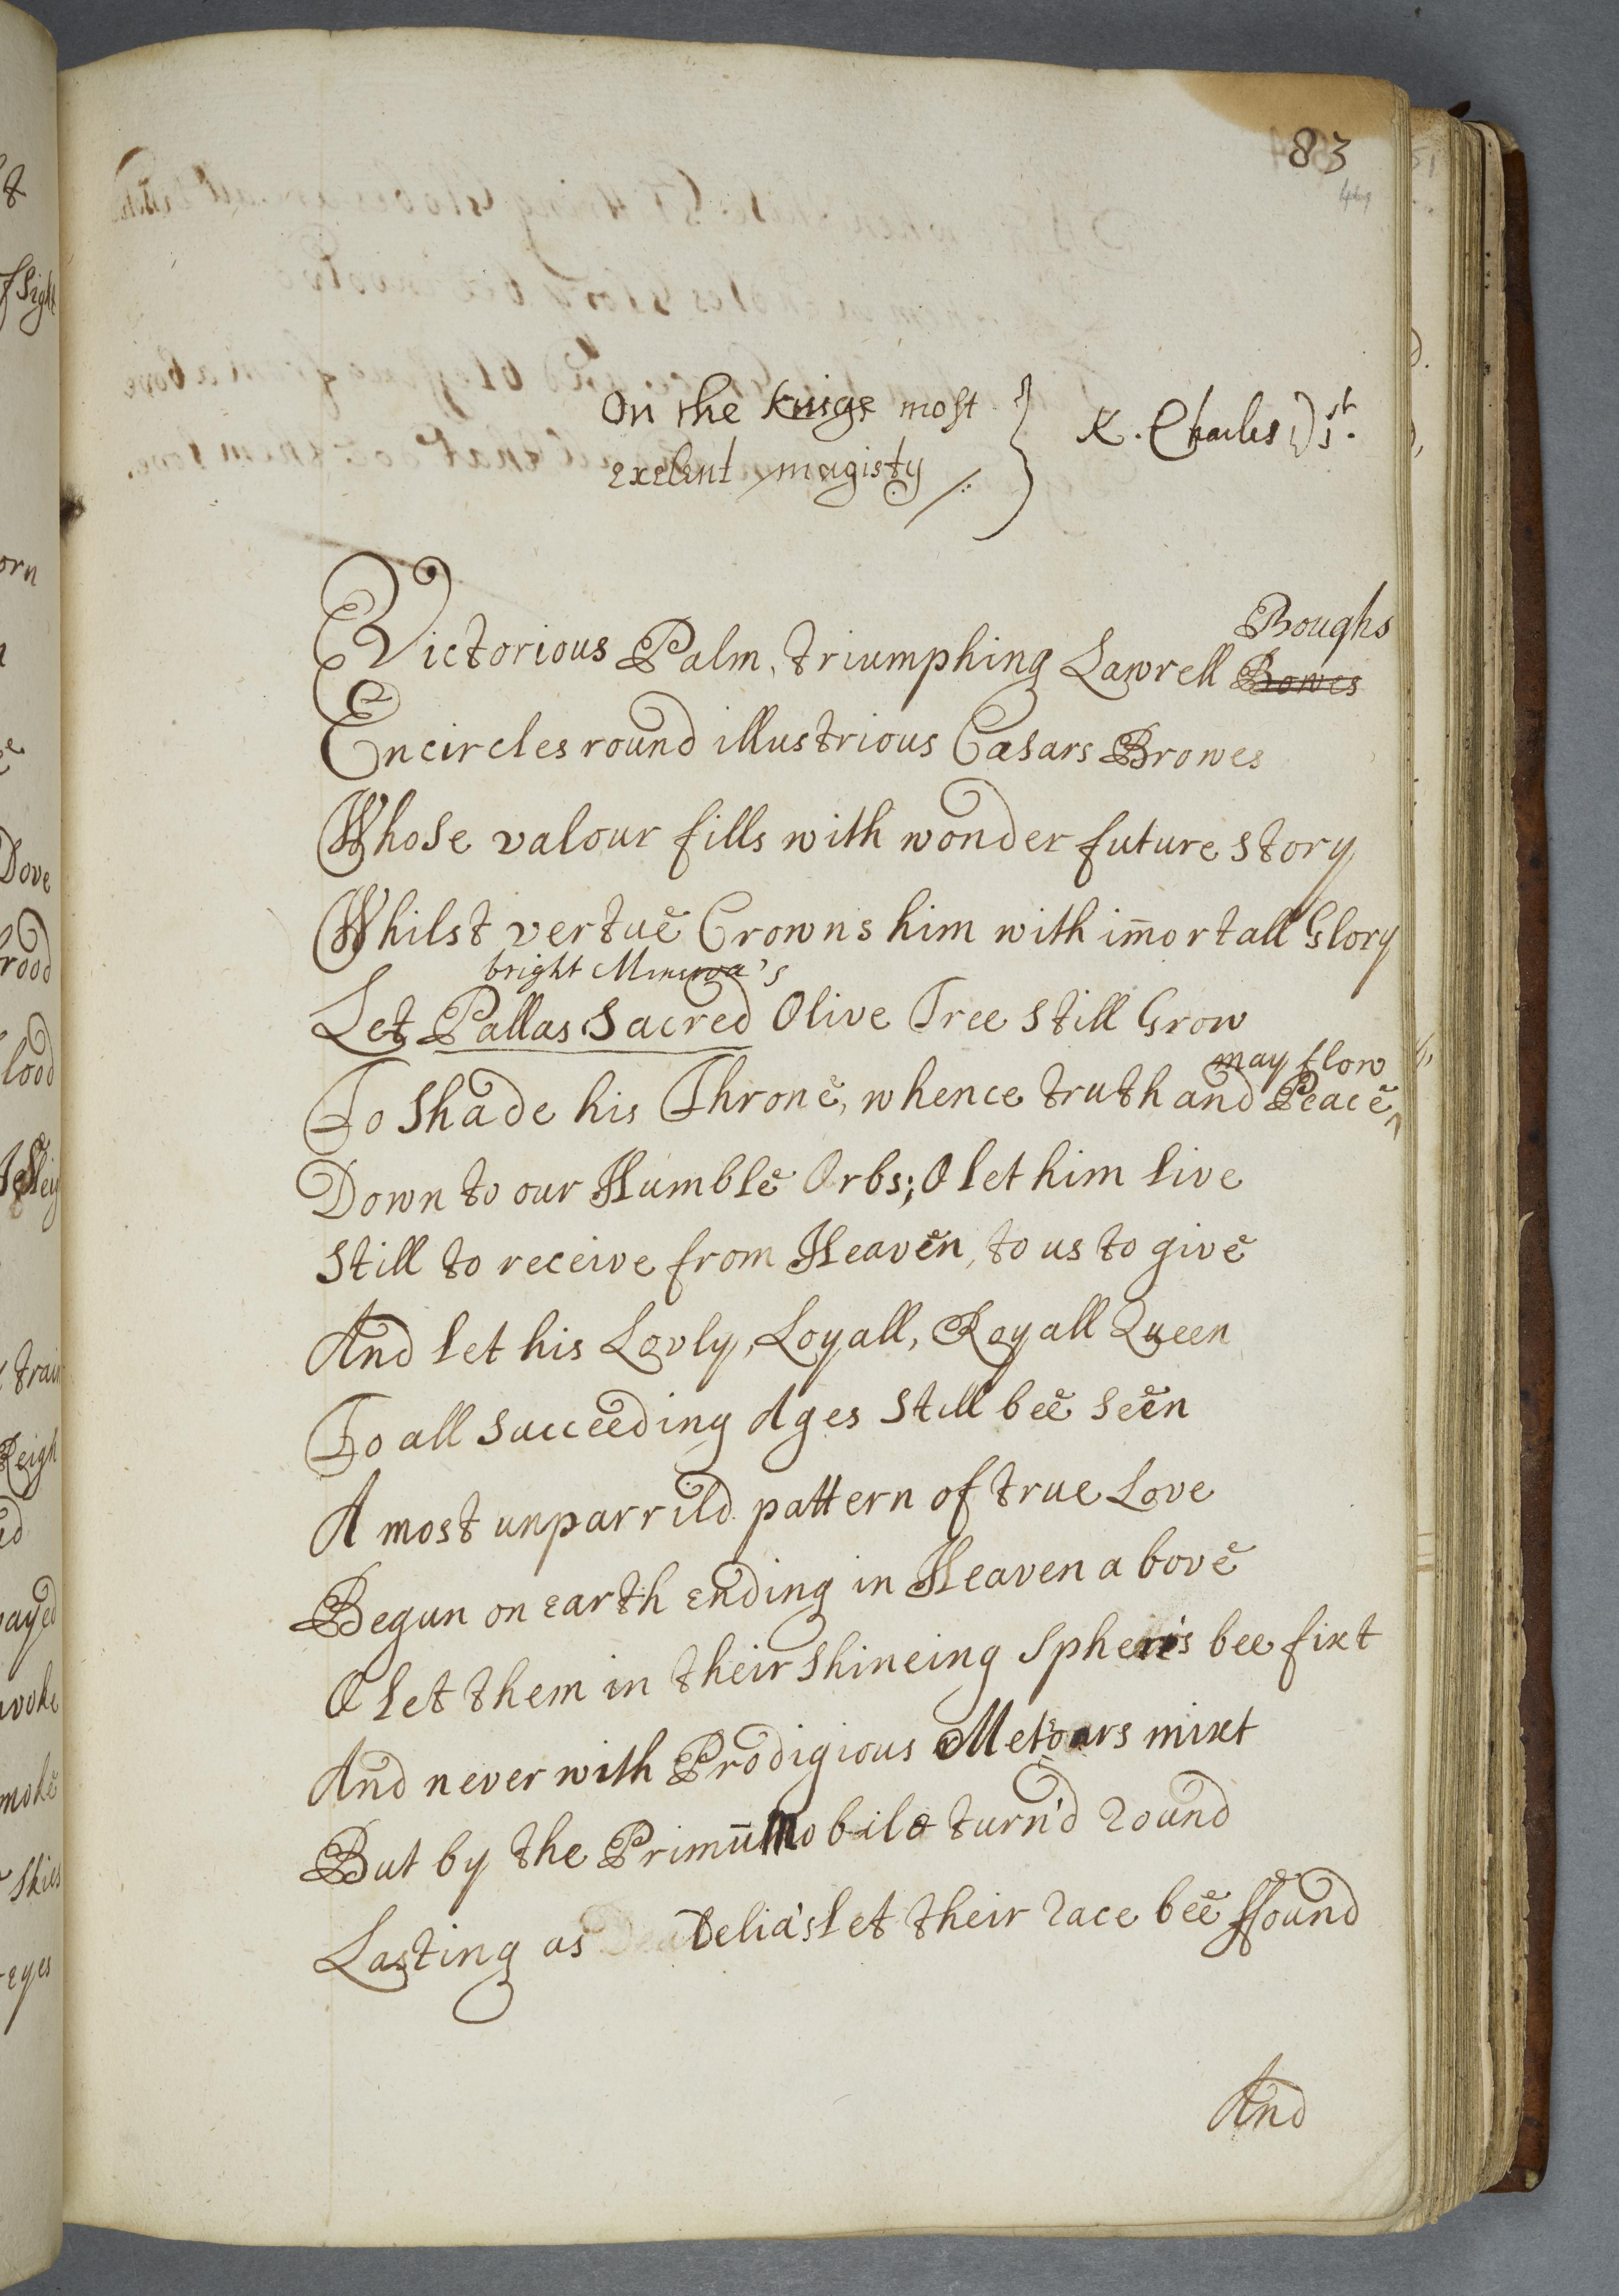 83
On the Kings most
exelent magisty /: } K. Charles 1st.
Boughs
Victorious Palm, triumphing Lawrell Bowes
Encircles round illustrious Cæsars Browes
Whose valour fills with wonder future story
Whilst vertue Crowns him with im̄ortall Glory
bright Minerva's
Let Pallas Sacred Olive Tree still Grow
may flow
To Shade his Throne, whence truth and Peace ^
Down to our Humble Orbs; O let him live
Still to receive from Heaven, to us to give
And let his Lovly, Loyall, Royall Queen
To all succeeding Ages still bee seen
A most unparrild pattern of true Love
Begun on earth ending in Heaven above
O let them in their shineing Spheris bee fixt
And never with Prodigious Meteors mixt
But by the Primū Mobile turn'd round
Lasting as Delia's let their race bee ffound
And